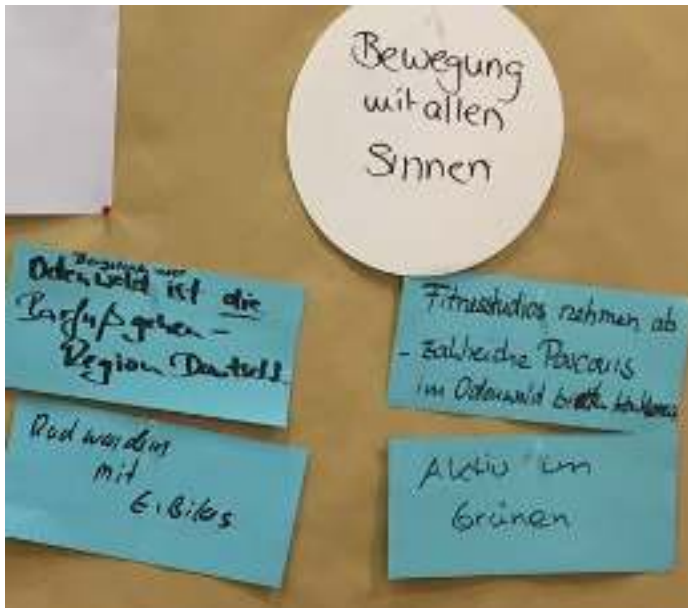 Bewegung
mit allen
Sinnen
Odenwald ist die
Barfußgehen-
Region Deutschl.
Fitnesstudios nehmen ab
- zahlreiche Parcours
im Odenwald
Radwandern
mit
E-Bikes
Aktiv im
Grünen